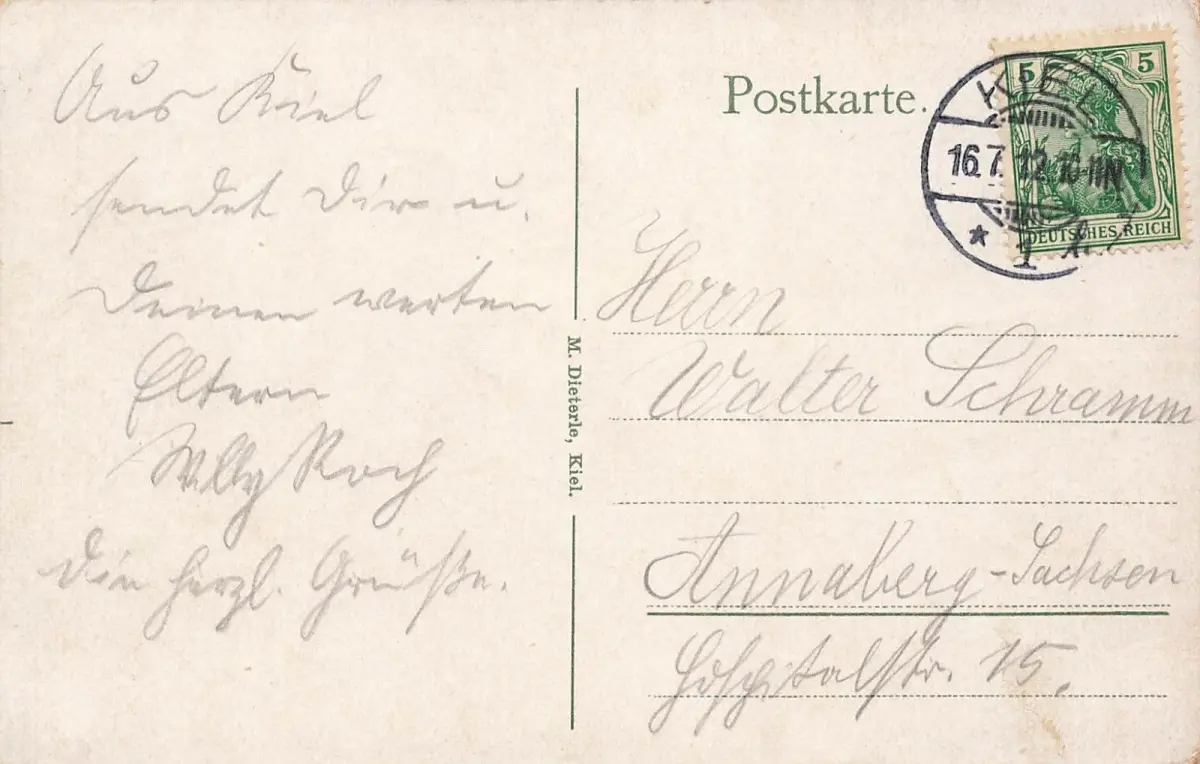 Aus Kiel
sendet Dir u.
Deinen werten
Eltern
Willy Koch
die herzl. Grüße.
Postkarte.
5 5
KIEL
16.7.12.10-11N
* 1
DEUTSCHES REICH
M. Dieterle, Kiel.
Herrn
Walter Schramm
Annaberg-Sachsen
Hospitalstr. 15.